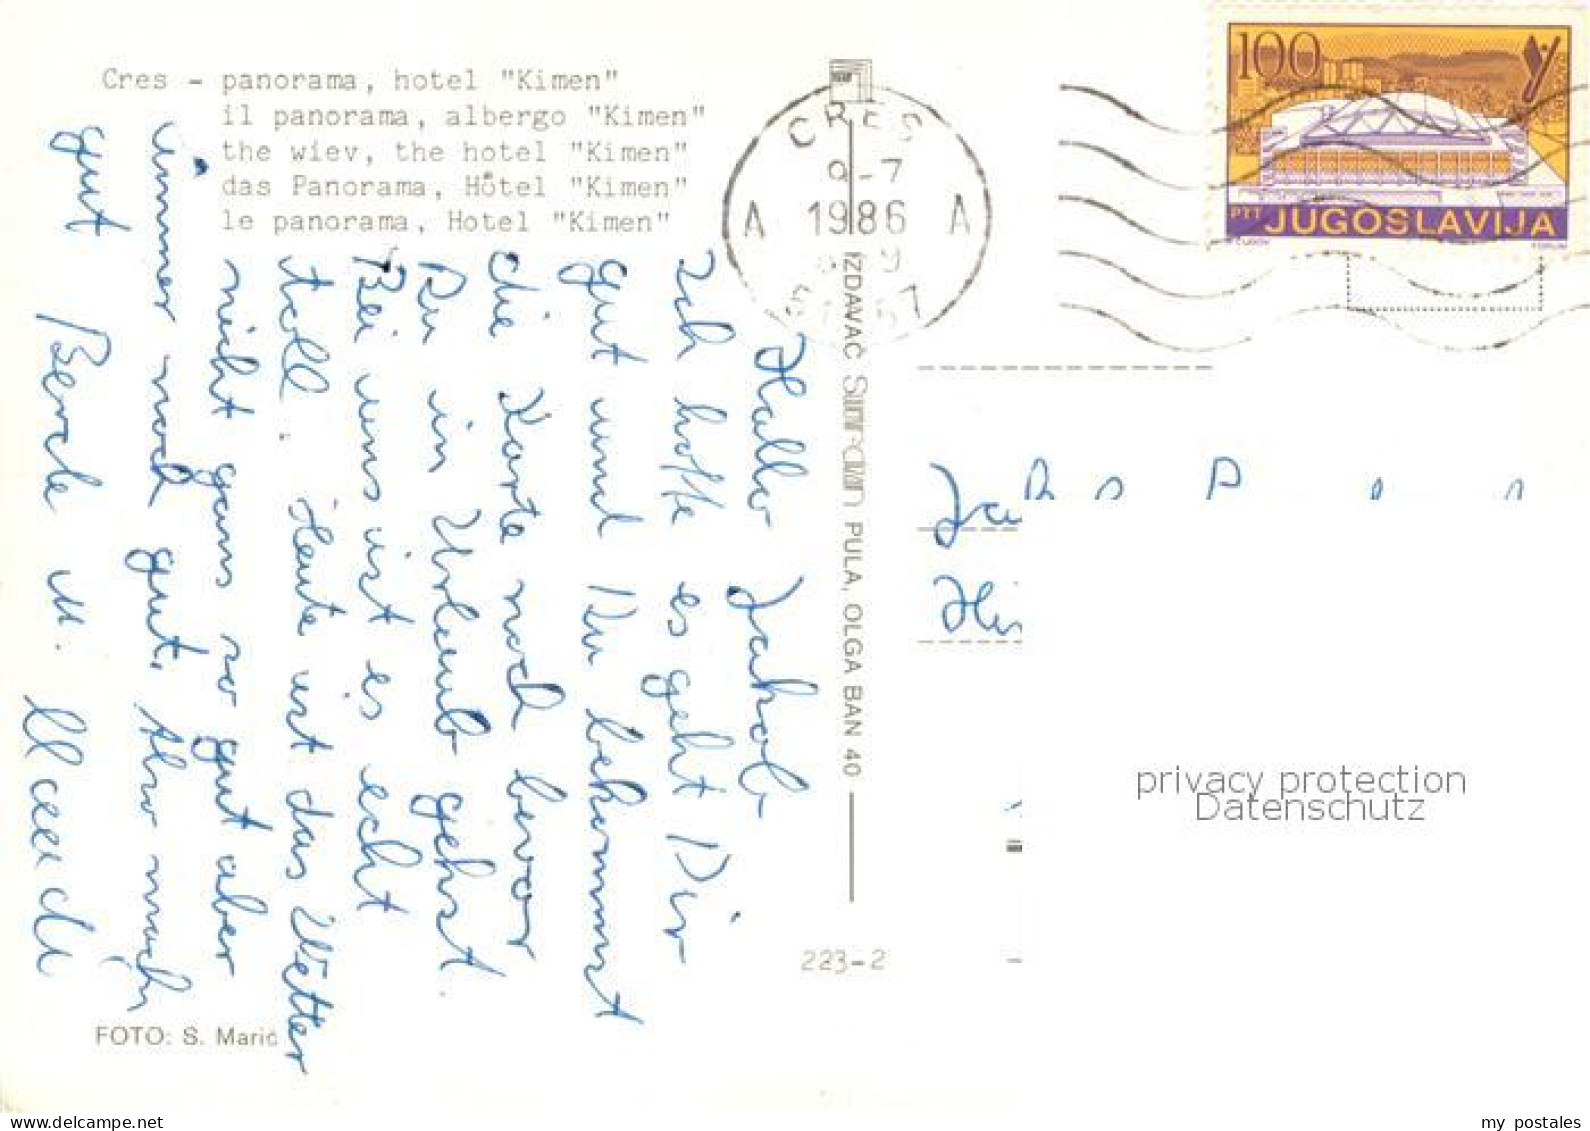 Cres - panorama, hotel "Kimen"
il panorama, albergo "Kimen"
the wiev, the hotel "Kimen"
das Panorama, Hôtel "Kimen"
le panorama, Hotel "Kimen"
Hallo Jakob
Ich hoffe es geht Dir
gut und Du bekommst
die Karte noch bevor
Du in Urlaub gehst.
Bei uns ist es echt
toll. Heute ist das Wetter
nicht ganz so gut aber
immer noch gut.
gut
FOTO: S. Marić
IZDAVAČ PULA, OLGA BAN 40
223-2
CRES
9-7
A 1986 A
100
PTT JUGOSLAVIJA
privacy protection
Datenschutz
my postales